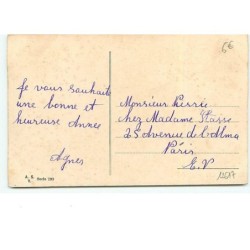 Je vous souhaite
une bonne et
heureuse Année
Agnes
Monsieur Pierre
chez Madame Stasse
25 Avenue de l'Alma
Paris
E.V